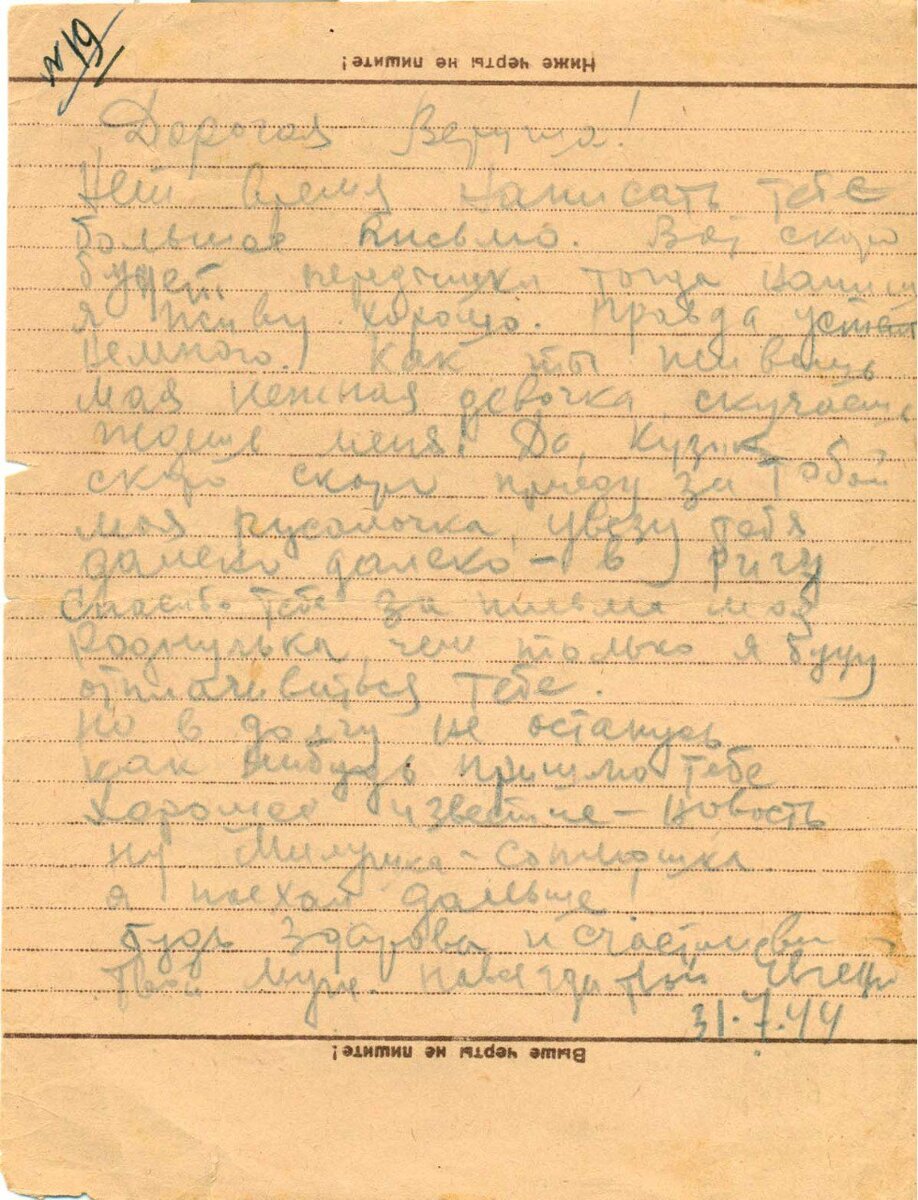 № 19
Ниже черты не пишите!
Дорогая Веруша!
Нет время написать тебе
большое письмо. Вот скоро
будет передышка тогда напишу
я живу хорошо. Правда устал
немного.) Как ты живешь
моя нежная девочка, скучаешь
ждешь меня. Да, Кузик
скоро скоро приеду за тобой
моя русалочка, увезу тебя
далеко далеко – в Ригу
Спасибо тебе за письма моя
Роднулька, чем только я буду
отплачиваться тебе.
Но в долгу не останусь
как нибудь пришлю тебе
хорошее известие – новость
Ну Милушка – Соплюшка
я поехал дальше!
Будь здорова и счастлива
Твой муж. Навсегда твой Евгений
31.7.44
Выше черты не пишите!